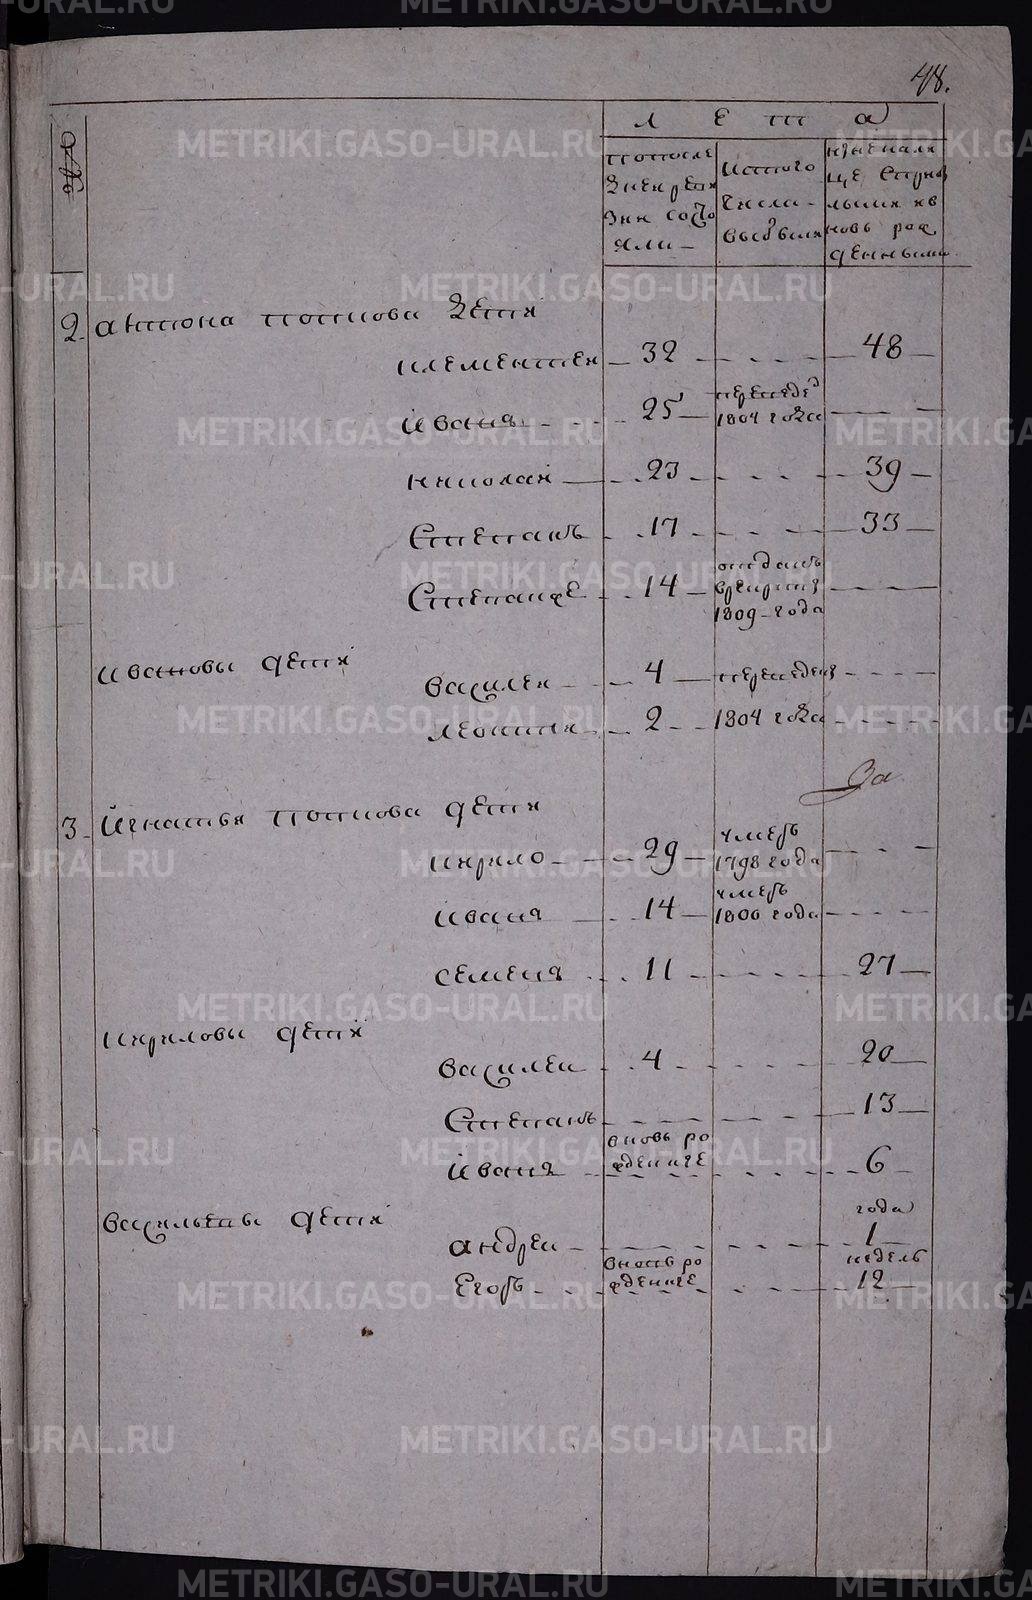 48.
№
л е т а
по после
дней реви
зии состо
яли
ис того
числа
выбыли
и ныне на ли
це с при
былыми и в
новь рож
денными
2. антона попкова дети
клементеи 32 48
иванъ 25 переведе 1804 года
николаи 23 39
степанъ 17 33
степанже 14 отданъ в рекруты 1809 года
ивановы дети
василеи 4 переведены
леонти 2 1804 года
За
3 игнатья попкова дети
кирило 29 умеръ 1798 года
иванъ 14 умеръ 1800 года
семенъ 11 27
кириловы дети
василеи 4 20
степанъ 13
иванъ вновь рожденные 6
васильевы дети
андреи года 1
егоръ вновь рожденные недель 12
METRIKI.GASO-URAL.RU